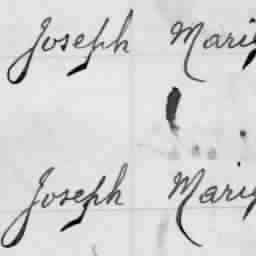 Joseph Mari
Joseph Mari